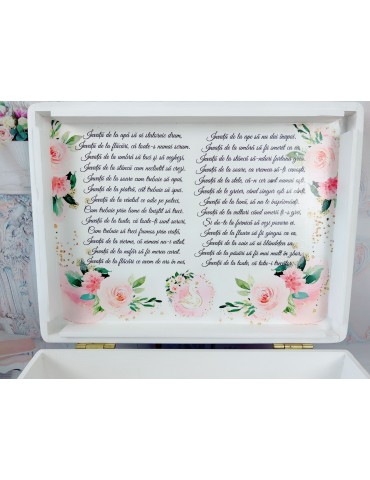 Învaţă de la apă să ai statornic drum,
Învaţă de la flăcări, că toate-s numai scrum.
Învaţă de la umbră să taci şi să veghezi,
Învaţă de la stâncă cum neclintit să crezi.
Învaţă de la soare cum trebuie să apui,
Învaţă de la piatră, cât trebuie să spui,
Învaţă de la vântul ce adie pe poteci,
Cum trebuie prin lume de liniştit să treci.
Învaţă de la toate, că toate-ţi sunt surori,
Cum trebuie să treci frumos prin viaţă,
Învaţă de la vierme, că nimeni nu-i uitat,
Învaţă de la nufăr să fii mereu curat.
Învaţă de la flăcări ce avem de ars în noi,
Învaţă de la apă să nu dai înapoi,
Învaţă de la umbră să fii smerit ca ea,
Învaţă de la stâncă să-nduri furtuna grea.
Învaţă de la soare, ca vremea să-ţi cunoşti,
Învaţă de la stele, că-n cer sunt numai oşti,
Învaţă de la greier, când singur eşti să cânţi,
Învaţă de la lună, să nu te înspăimânţi.
Învaţă de la vulturi când umerii ţi-s grei,
Şi du-te la furnică să vezi povara ei.
Învaţă de la floare să fii gingaş ca ea,
Învaţă de la oaie să ai blândeţea sa,
Învaţă de la păsări să fii mai mult în zbor,
Învaţă de la toate, că totu-i trecător.